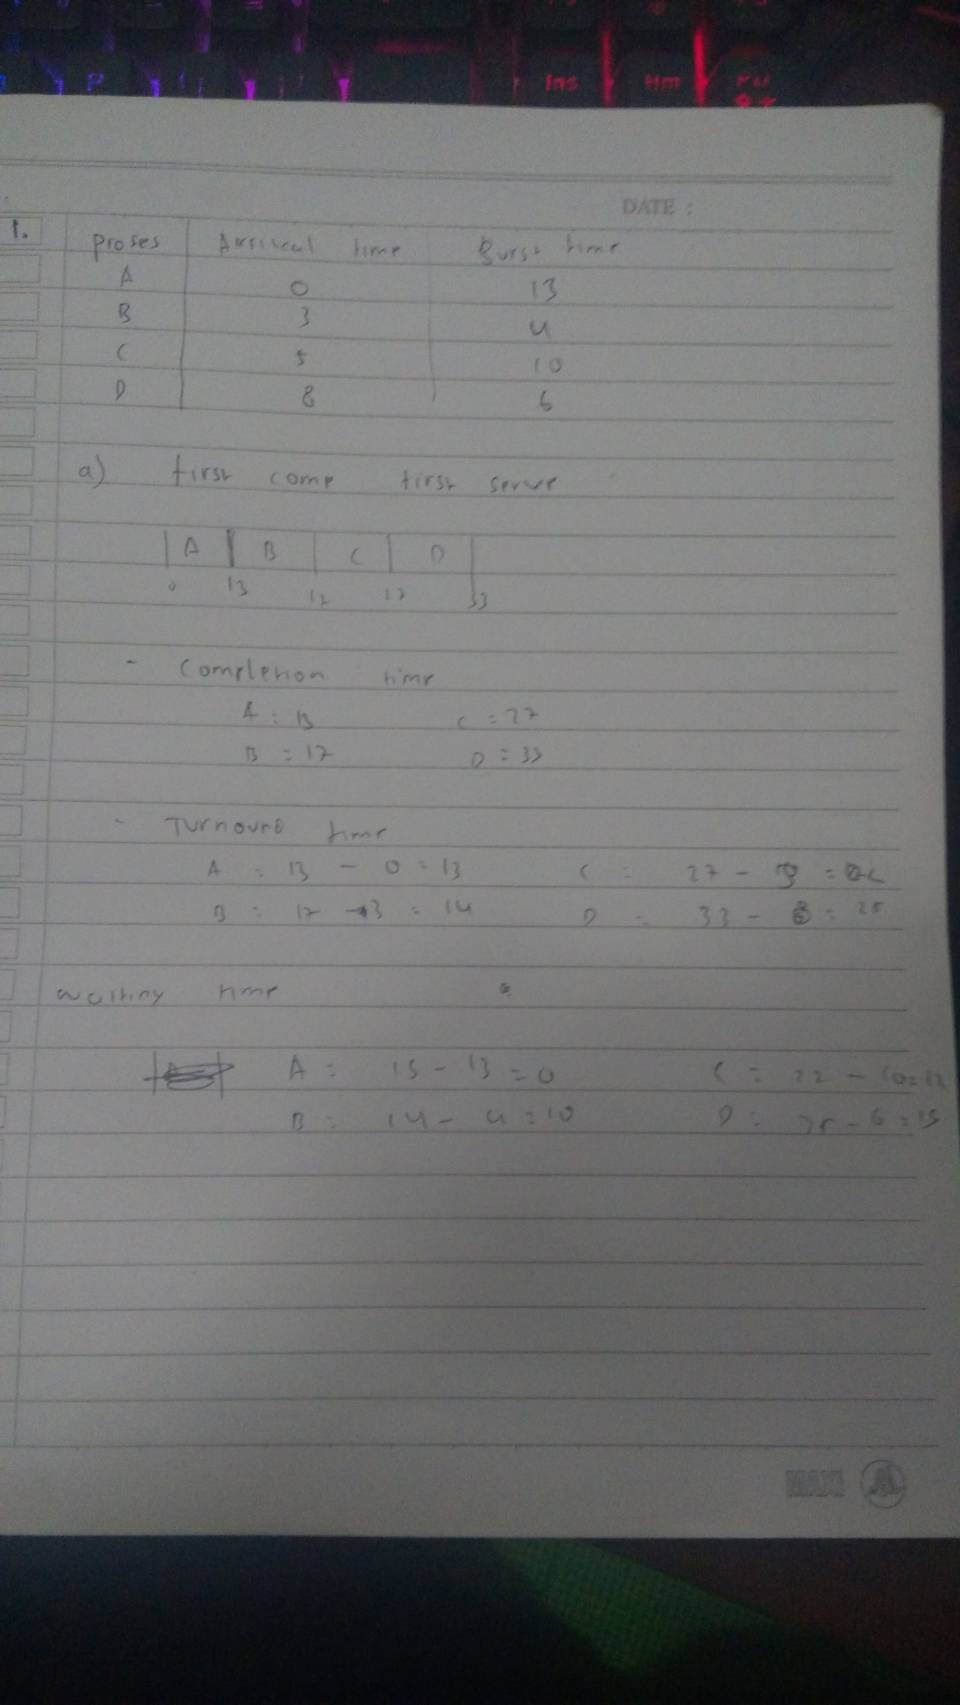 P Ins Hm
DATE :
1. Proses Arrival time Burst time
A 0 13
B 3 4
C 5 10
D 8 6
a) first come first serve
A B C D
0 13 17 27 33
- Completion time
A : 13 C = 27
B = 17 D = 33
- Turnourd time
A : 13 - 0 = 13 C : 27 - 5 =
B = 17 - 3 = 14 D = 33 - 8 = 25
waiting time
A = 13 - 13 = 0 C = 22 - 10 = 12
B = 14 - 4 = 10 D = 25 - 6 = 19